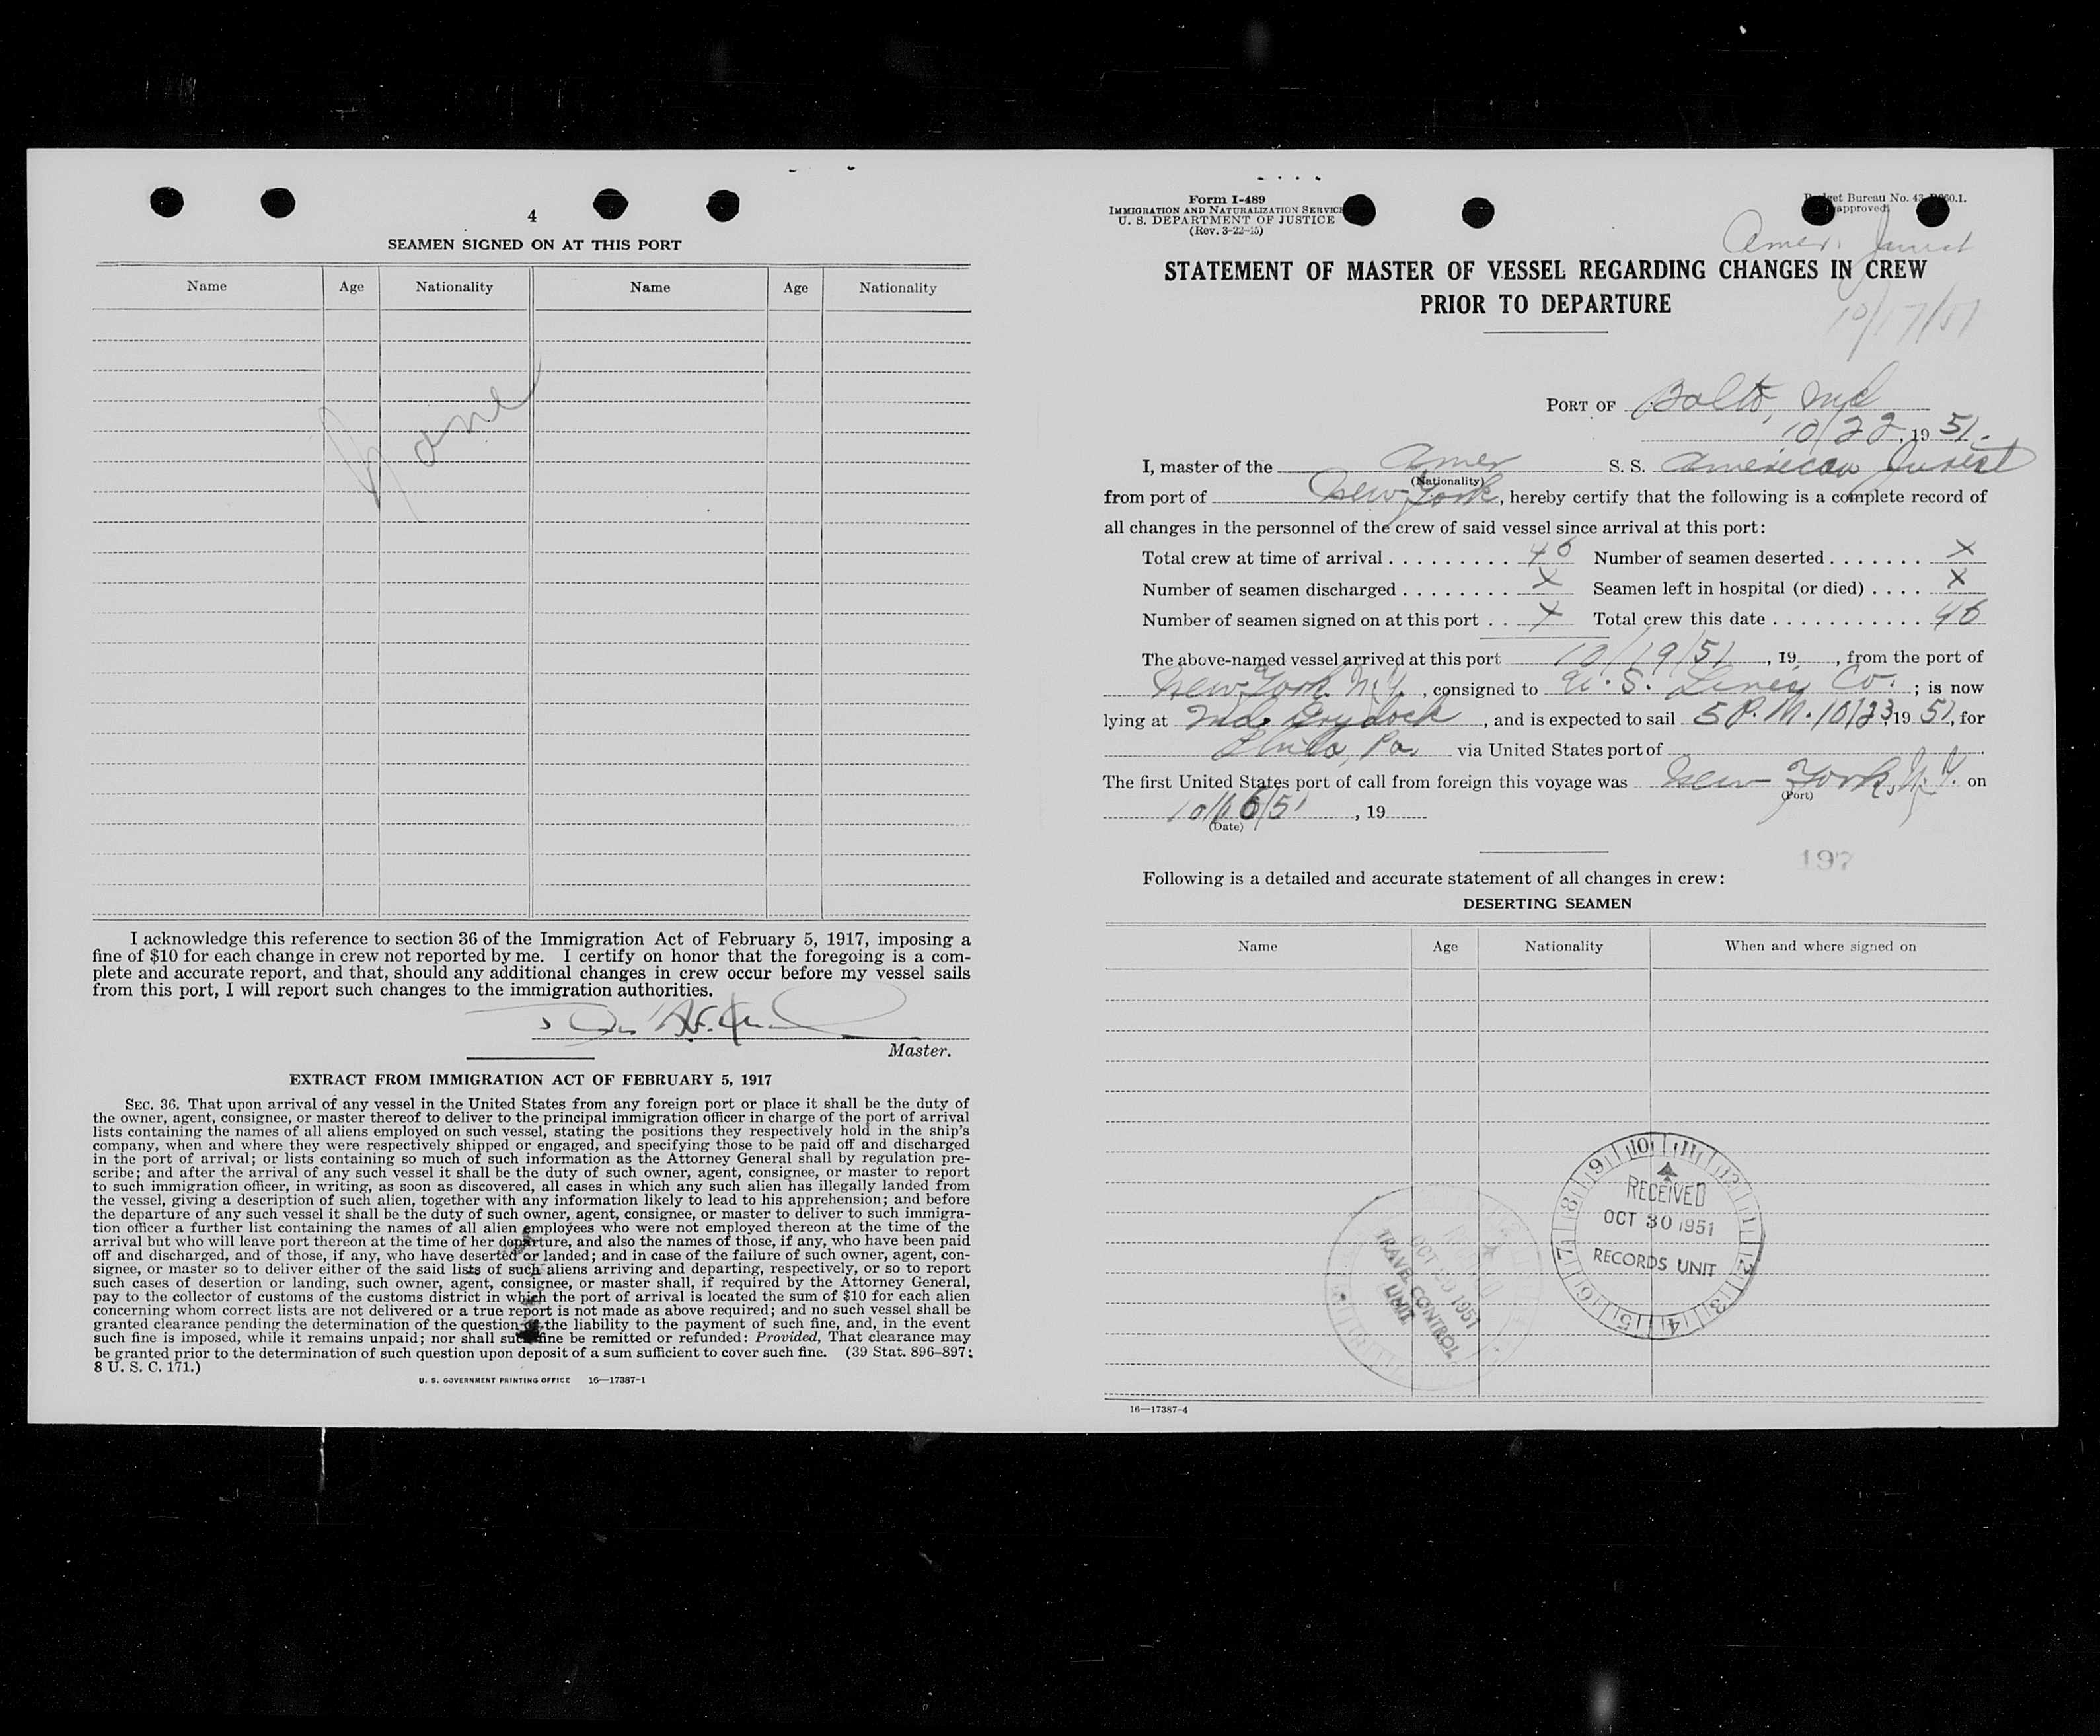 4
SEAMEN SIGNED ON AT THIS PORT
Name Age Nationality Name Age Nationality
None
I acknowledge this reference to section 36 of the Immigration Act of February 5, 1917, imposing a
fine of $10 for each change in crew not reported by me. I certify on honor that the foregoing is a com-
plete and accurate report, and that, should any additional changes in crew occur before my vessel sails
from this port, I will report such changes to the immigration authorities.
Master.
EXTRACT FROM IMMIGRATION ACT OF FEBRUARY 5, 1917
SEC. 36. That upon arrival of any vessel in the United States from any foreign port or place it shall be the duty of
the owner, agent, consignee, or master thereof to deliver to the principal immigration officer in charge of the port of arrival
lists containing the names of all aliens employed on such vessel, stating the positions they respectively hold in the ship's
company, when and where they were respectively shipped or engaged, and specifying those to be paid off and discharged
in the port of arrival; or lists containing so much of such information as the Attorney General shall by regulation pre-
scribe; and after the arrival of any such vessel it shall be the duty of such owner, agent, consignee, or master to report
to such immigration officer, in writing, as soon as discovered, all cases in which any such alien has illegally landed from
the vessel, giving a description of such alien, together with any information likely to lead to his apprehension; and before
the departure of any such vessel it shall be the duty of such owner, agent, consignee, or master to deliver to such immigra-
tion officer a further list containing the names of all alien employees who were not employed thereon at the time of the
arrival but who will leave port thereon at the time of her departure, and also the names of those, if any, who have been paid
off and discharged, and of those, if any, who have deserted or landed; and in case of the failure of such owner, agent, con-
signee, or master so to deliver either of the said lists of such aliens arriving and departing, respectively, or so to report
such cases of desertion or landing, such owner, agent, consignee, or master shall, if required by the Attorney General,
pay to the collector of customs of the customs district in which the port of arrival is located the sum of $10 for each alien
concerning whom correct lists are not delivered or a true report is not made as above required; and no such vessel shall be
granted clearance pending the determination of the question of the liability to the payment of such fine, and, in the event
such fine is imposed, while it remains unpaid; nor shall such fine be remitted or refunded: Provided, That clearance may
be granted prior to the determination of such question upon deposit of a sum sufficient to cover such fine. (39 Stat. 896-897;
8 U. S. C. 171.)
U. S. GOVERNMENT PRINTING OFFICE 16—17387-1
Form I-489
IMMIGRATION AND NATURALIZATION SERVICE
U. S. DEPARTMENT OF JUSTICE
(Rev. 3-22-45)
Budget Bureau No. 43
approved.
Amer. Jurist
STATEMENT OF MASTER OF VESSEL REGARDING CHANGES IN CREW
PRIOR TO DEPARTURE
10/17/51
PORT OF Balto, Md
10/22, 19 51.
I, master of the Amer S. S. American Jurist
(Nationality)
from port of New York, hereby certify that the following is a complete record of
all changes in the personnel of the crew of said vessel since arrival at this port:
Total crew at time of arrival . . . . . . . . . 46 Number of seamen deserted . . . . . . . X
Number of seamen discharged . . . . . . . . X Seamen left in hospital (or died) . . . . X
Number of seamen signed on at this port . . X Total crew this date . . . . . . . . . . . 46
The above-named vessel arrived at this port 10/19/51, 19 , from the port of
New York N.Y., consigned to U. S. Lines Co. ; is now
lying at Md. Drydock, and is expected to sail 5 P.M. 10/23, 19 51, for
Phila, Pa. via United States port of
The first United States port of call from foreign this voyage was New York, N.Y. on
(Port)
10/16/51, 19
(Date)
197
Following is a detailed and accurate statement of all changes in crew:
DESERTING SEAMEN
Name Age Nationality When and where signed on
10 11 12 1 2 3 4 5 6 7 8 9
RECEIVED
OCT 30 1951
RECORDS UNIT
OCT 1951
TRAVEL CONTROL
UNIT
16—17387-4